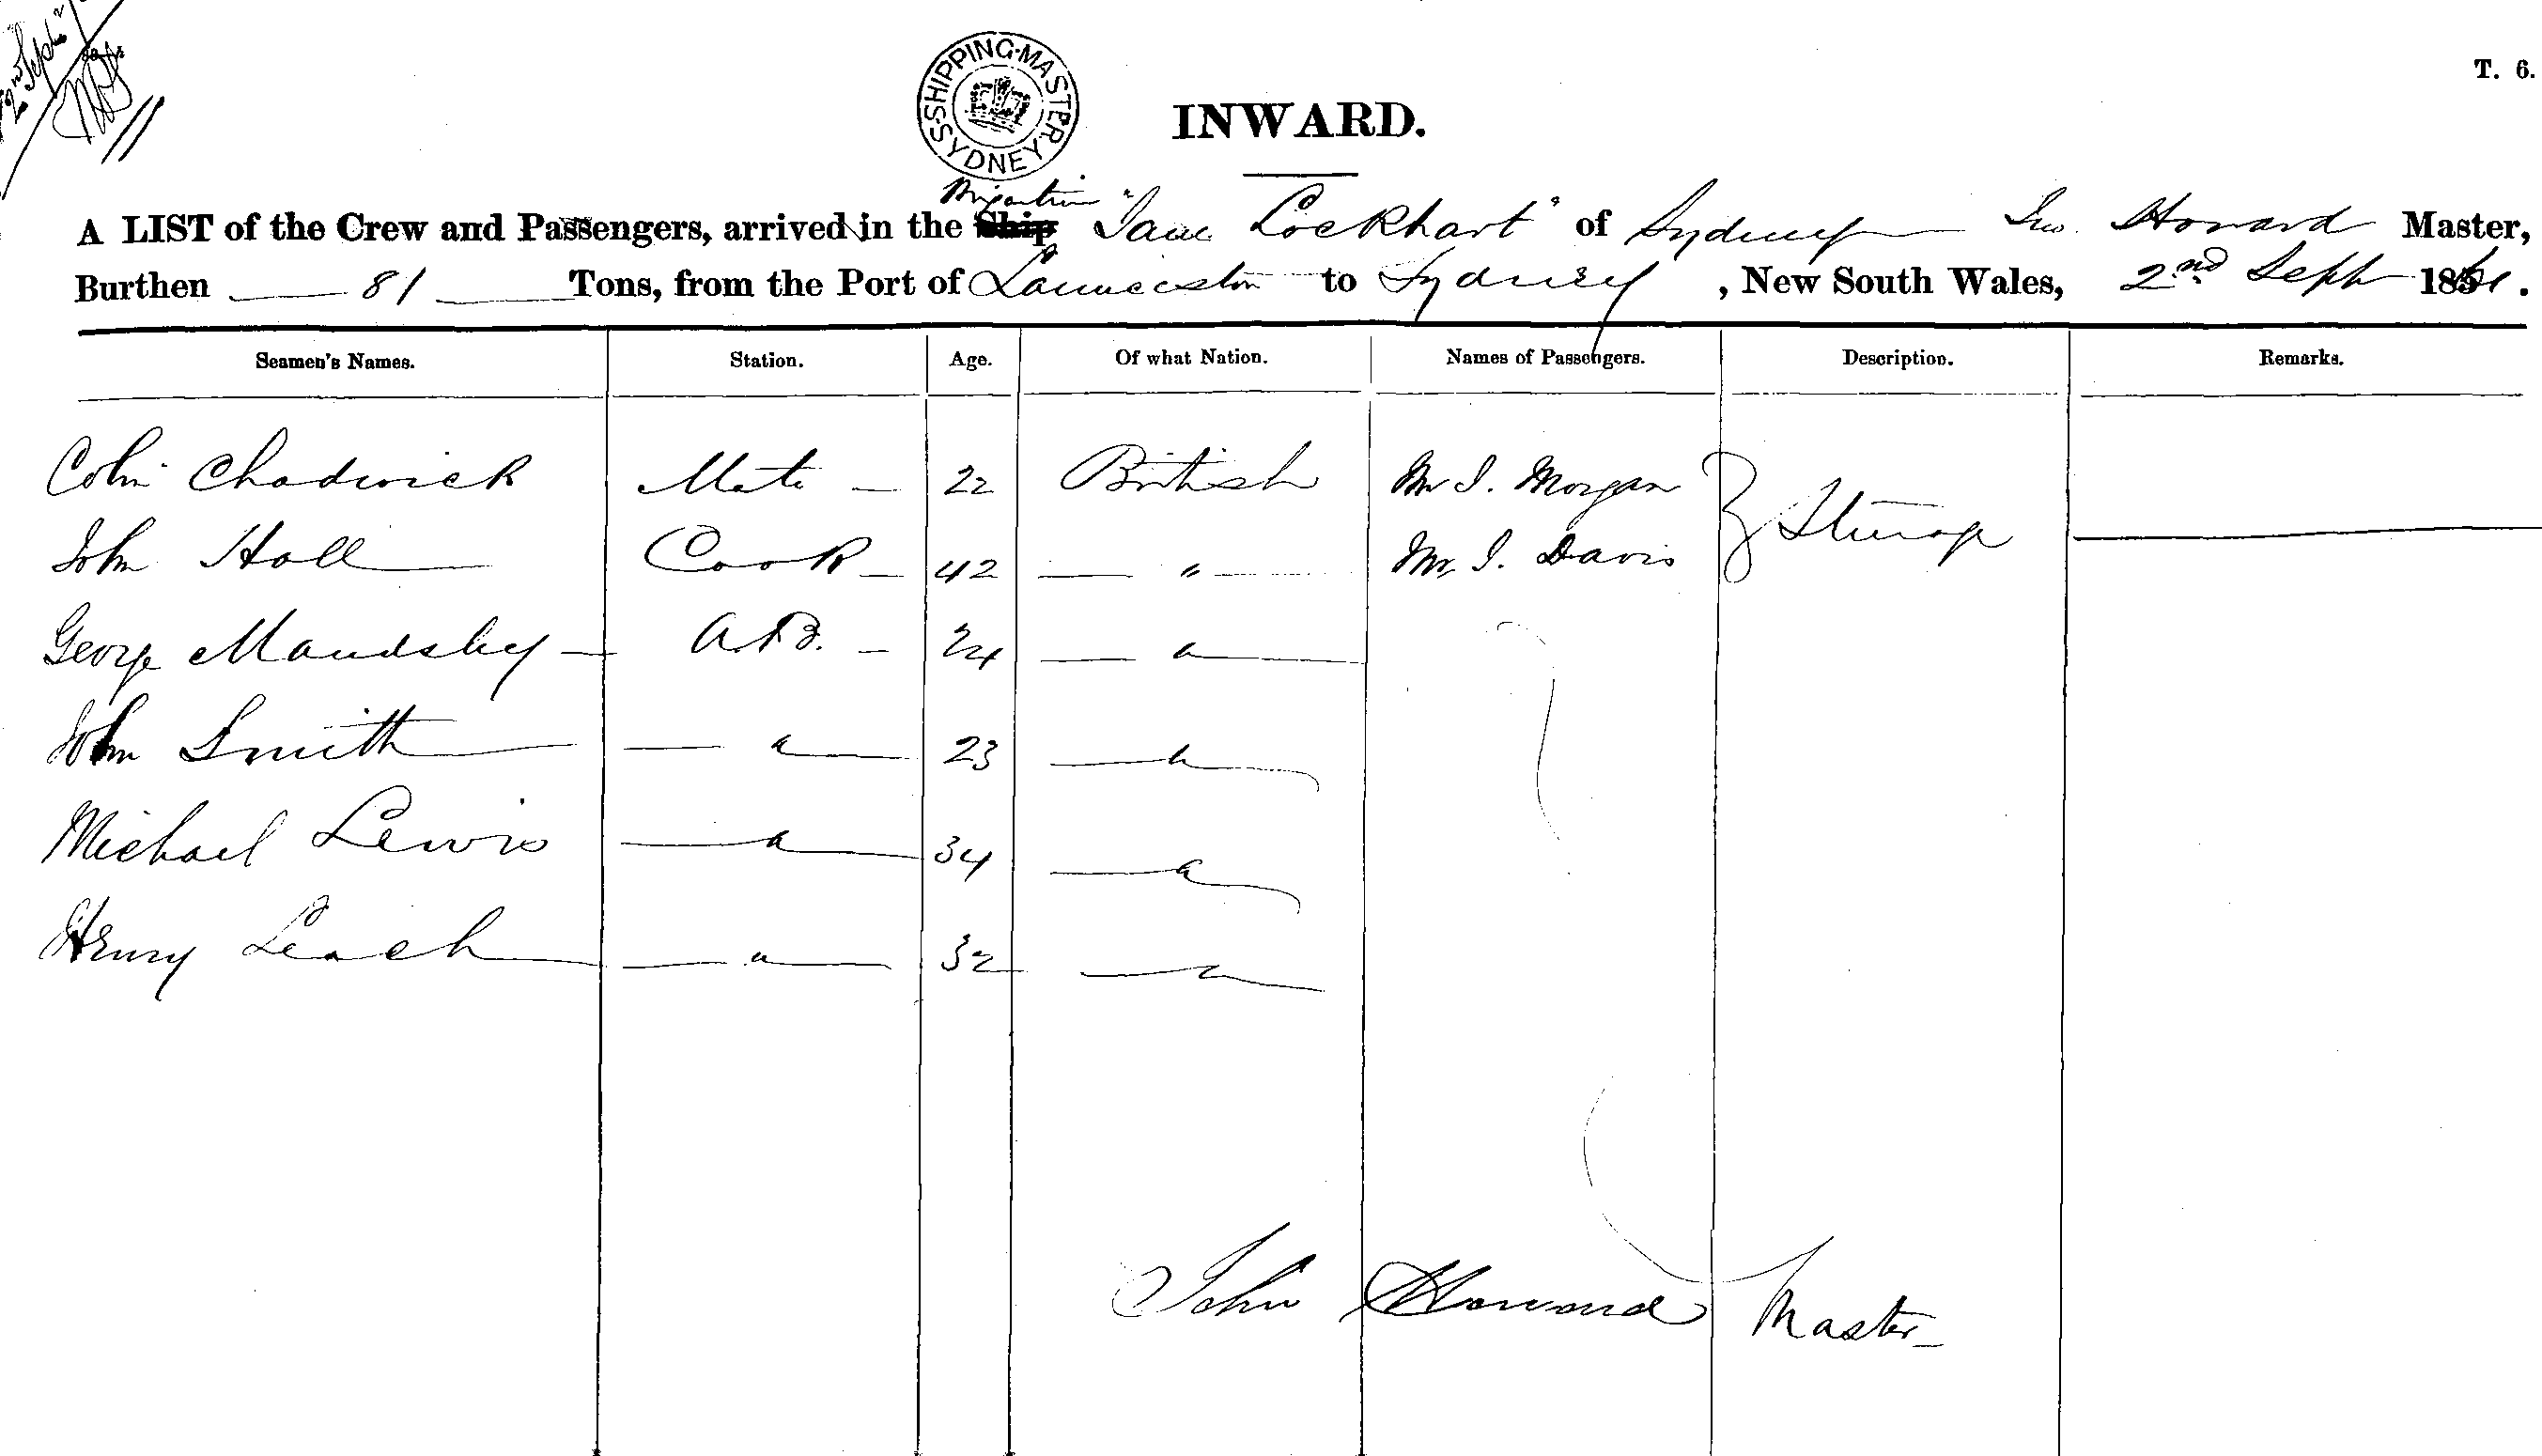 2nd Sept
SHIPPING·MASTER·S·SYDNEY
T. 6.
INWARD.
Brigantine
A LIST of the Crew and Passengers, arrived in the Ship "Jane Lockhart" of Sydney Jno. Howard Master,
Burthen 81 Tons, from the Port of Launceston to Sydney, New South Wales, 2nd Sept 1861.
Seamen's Names. Station. Age. Of what Nation. Names of Passengers. Description. Remarks.
Colin Chadwick Mate 22 British Mr J. Morgan
Steerage
John Hall Cook 42 " Mr J. Davis
George Maudsley A.B. 24 "
John Smith " 23 "
Michael Lewis " 34 "
Henry Leach " 32 "
John Howard Master